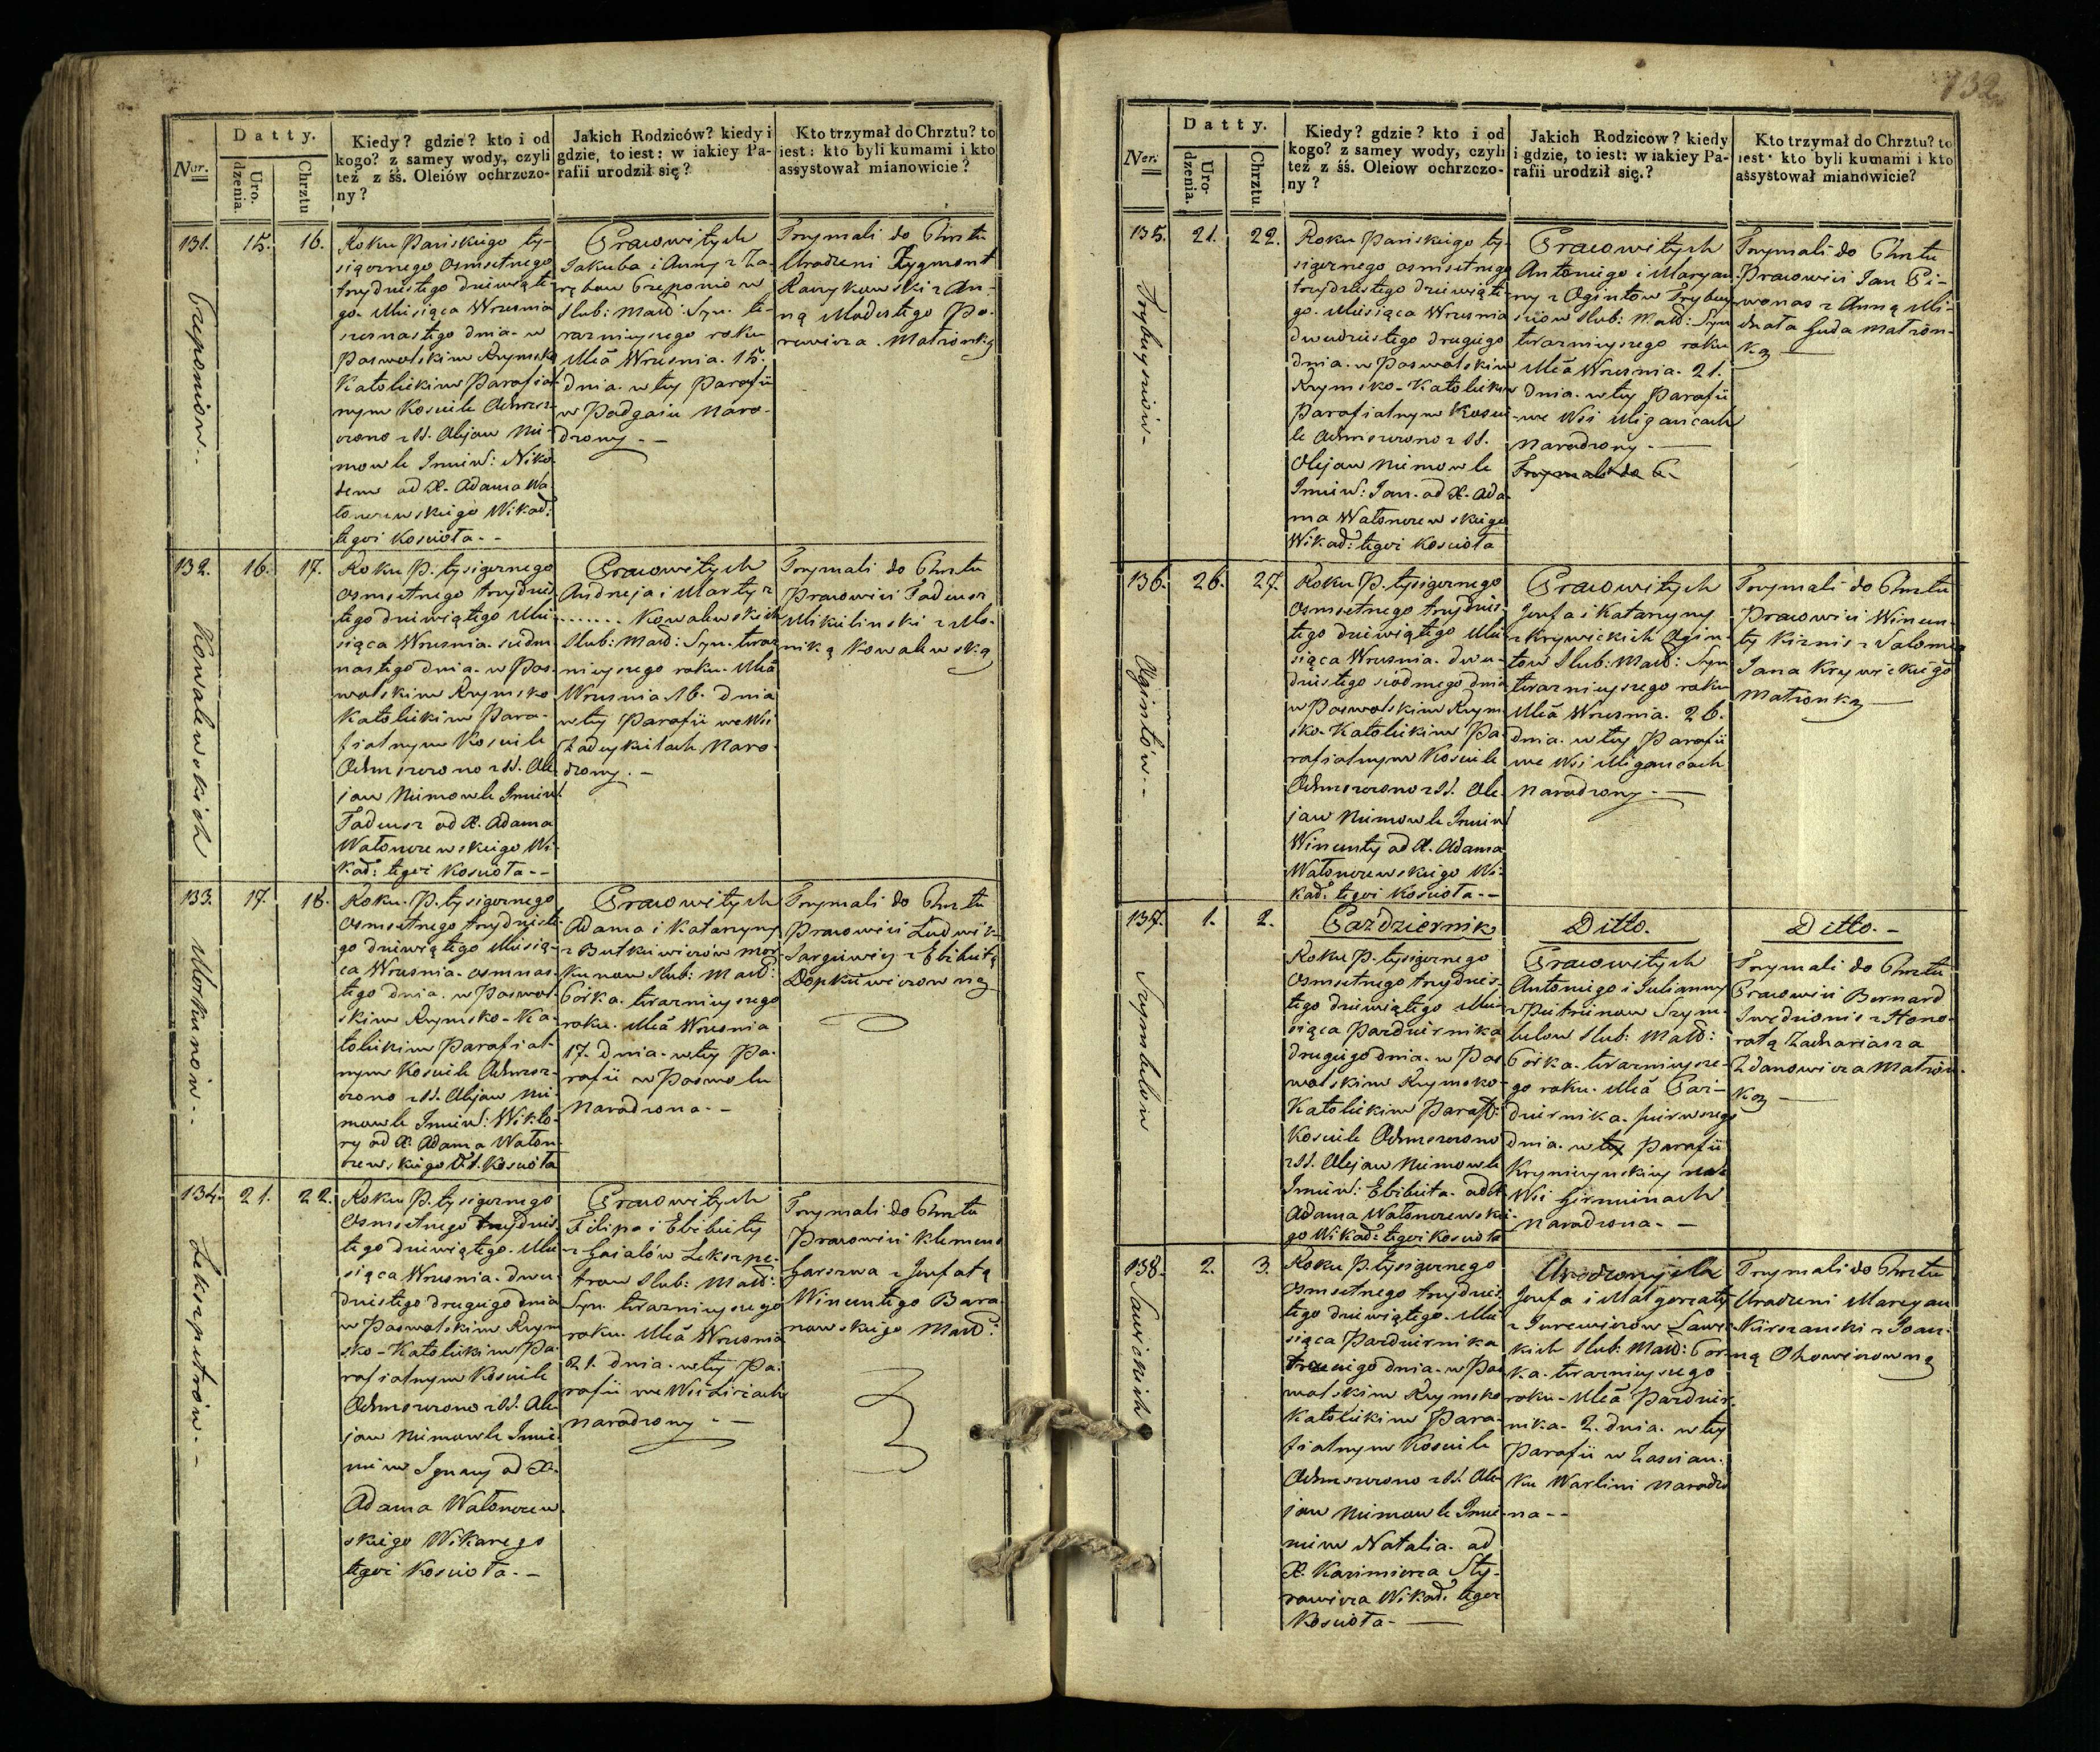 132.
Datty.
Ner.
Uro-
dzenia.
Chrztu
Kiedy? gdzie? kto i od
kogo? z samey wody, czyli
też z śś. Oleiów ochrzczo-
ny?
Jakich Rodziców? kiedy i
gdzie, to iest: w iakiey Pa-
rafii urodził się?
Kto trzymał do Chrztu? to
iest: kto byli kumami i kto
assystował mianowicie?
131.
15.
16.
Roku Pańskiego ty-
siącznego Osmsetnego
trzydziestego dziewiąte-
go Miesiąca Wrzesnia
szesnastego dnia w
Poswolskim Rzymsko
Katolickim Parafial-
nym Kosciele Ochrzcz-
czono z SS. Olejow Nie-
mowle Imien: Niko-
dem od X. Adama Wa-
tonczewskiego Wikar:
tegoż Kościoła --
Pracowitych
Jakuba i Anny z Za-
rębow Czeponiow
Slub: Małż: Syn te-
razniejszego roku
Mca Wrzesnia 15.
dnia w tey Parafii
w Podgaiu Naro-
dzony --
Trzymali do Chrztu
Urodzeni Zygmont
Raczykowski z An-
ną Modestego Po-
rewicza Matronką
Czeponiow --
132.
16.
17.
Roku P. tysiącznego
Osmsetnego trzydzies-
tego dziewiątego Mie-
siąca Wrzesnia siedm
nastego dnia w Pos-
wolskim Rzymsko
Katolickim Para-
fialnym Kosciele
Ochrzczono z SS. Ole-
jow Niemowle Imien:
Tadeusz od X. Adama
Watonczewskiego Wi-
kar: tegoż Kościoła --
Pracowitych
Andrzeja i Marty z
....... Kowalewskich
Slub: Małż: Syn teraz
niejszego roku Mca
Wrzesnia 16. dnia
w tey Parafii we Wsi
Zadeykielach Naro-
dzony. --
Trzymali do Chrztu
Pracowici Tadeusz
Mikulinski z Mo-
niką Kowalewską
Kowalewskich
133.
17.
18.
Roku P. tysiącznego
Osmsetnego trzydzieste-
go dziewiątego Miesią-
ca Wrzesnia osmnas-
tego dnia w Poswol-
skim Rzymsko-Ka-
tolickim Parafial-
nym Kosciele Ochrzcz-
czono z SS. Olejow Nie-
mowle Imien: Wikto-
ry od X. Adama Waton-
czewskiego W.t. Kościoła
Pracowitych
Adama i Katarzyny
z Butkiewiczów Mor-
kunow Slub: Małż:
Córka terazniejszego
roku Mca Wrzesnia
17. dnia w tey Pa-
rafii w Poswolu
Narodzona --
Trzymali do Chrztu
Pracowici Ludwik
Jargiewicz z Elżbietą
Dopkiewiczowną
Morkunow --
134.
21.
22.
Roku P. tysiącznego
Osmsetnego trzydzies-
tego dziewiątego Mie-
siąca Wrzesnia dwu-
dziestego drugiego dnia
w Poswolskim Rzym
sko-Katolickim Pa-
rafialnym Kosciele
Ochrzczono z SS. Ole-
jow Niemowle Imie-
niem Ignacy od X.
Adama Watonczew-
skiego Wikarego
tegoż Kościoła --
Pracowitych
Filipa i Elżbiety
z Gaialów Lekszpe-
trow Slub: Małż:
Syn terazniejszego
roku Mca Wrzesnia
21. dnia w tey Pa-
rafii we Wsi Liciach
Narodzony --
Trzymali do Chrztu
Pracowici Klemens
Garszwa z Jozefatą
Wincentego Bara-
nowskiego Małż:
Lekszpetrów --
Datty.
Ner.
Uro-
dzenia.
Chrztu
Kiedy? gdzie? kto i od
kogo? z samey wody, czyli
też z śś. Oleiow ochrzczo-
ny?
Jakich Rodzicow? kiedy
i gdzie, to iest: w iakiey Pa-
rafii urodził się.?
Kto trzymał do Chrztu? to
iest: kto byli kumami i kto
assystował mianowicie?
135.
21.
22.
Roku Pańskiego ty-
siącznego osmsetnego
trzydziestego dziewiąte-
go Miesiąca Wrzesnia
dwudziestego drugiego
dnia w Poswolskim
Rzymsko-Katolickim
Parafialnym Koscie-
le Ochrzczono z SS.
Olejow Niemowle
Imien: Jan od X. Ada-
ma Watonczewskiego
Wikar: tegoż Kościoła
Pracowitych
Antoniego i Maryan-
ny z Ogintow Trybuy-
sziow Slub: Małż: Syn
terazniejszego roku
Mca Wrzesnia 21.
dnia w tey Parafii
we Wsi Migancach
Narodzony --
Trzymali do C.
Trzymali do Chrztu
Pracowici Jan Pi-
wonas z Anną Mi-
chała Guda Matron-
ką --
Trybuysziow --
136.
26.
27.
Roku P. tysiącznego
Osmsetnego trzydzies-
tego dziewiątego Mie-
siąca Wrzesnia dwu-
dziestego siodmego dnia
w Poswolskim Rzym-
sko-Katolickim Pa-
rafialnym Kosciele
Ochrzczono z SS. Ole-
jow Niemowle Imien:
Wincenty od X. Adama
Watonczewskiego Wi-
kar: tegoż Kościoła --
Pracowitych
Jozefa i Katarzyny
z Krzywickich Ogin-
tow Slub: Małż: Syn
terazniejszego roku
Mca Wrzesnia 26.
dnia w tey Parafii
we Wsi Migancach
Narodzony --
Trzymali do Chrztu
Pracowici Wincen-
ty Kiznis z Salomeą
Jana Krzywickiego
Matronką --
Ogintów --
137.
1.
2.
Październik
Roku P. tysiącznego
Osmsetnego trzydzies-
tego dziewiątego Mie-
siąca Pazdziernika
drugiego dnia w Pos-
wolskim Rzymsko-
Katolickim Paraf:
Kosciele Ochrzczono
z SS. Olejow Niemowle
Imien: Elżbieta od X.
Adama Watonczewskie-
go Wikar: tegoż Kościoła
Ditto.
Pracowitych
Antoniego i Julianny
z Pietrisow Szym-
bulow Slub: Małż:
Córka terazniejsze-
go roku Mca Paź-
dziernika pierwszego
dnia w tey Parafii
Kryniczynskiey we
Wsi Girmiunach
Narodzona --
Ditto. --
Trzymali do Chrztu
Pracowici Bernard
Swędzionis z Hono-
ratą Zachariasza
Zdanowicza Matron-
ką --
Szymbulow
138.
2.
3.
Roku P. tysiącznego
Osmsetnego trzydzies-
tego dziewiątego Mie-
siąca Pazdziernika
trzeciego dnia w Pos-
wolskim Rzymsko
Katolickim Para-
fialnym Kosciele
Ochrzczono z SS. Ole-
jow Niemowle Imie-
niem Natalia od
X. Kazimierza Sty-
rowicza Wikar: tegoż
Kościoła --
Urodzonych
Jozefa i Małgorzaty
z Jurewiczów Ławric-
kich Slub: Małż: Cor-
ka terazniejszego
roku Mca Pazdzier-
nika 2. dnia w tey
Parafii w Zascian-
ku Warlini Narodzo-
na --
Trzymali do Chrztu
Urodzeni Maryan
Kirszanski z Joan-
ną Chowiczowną
Ławrickich